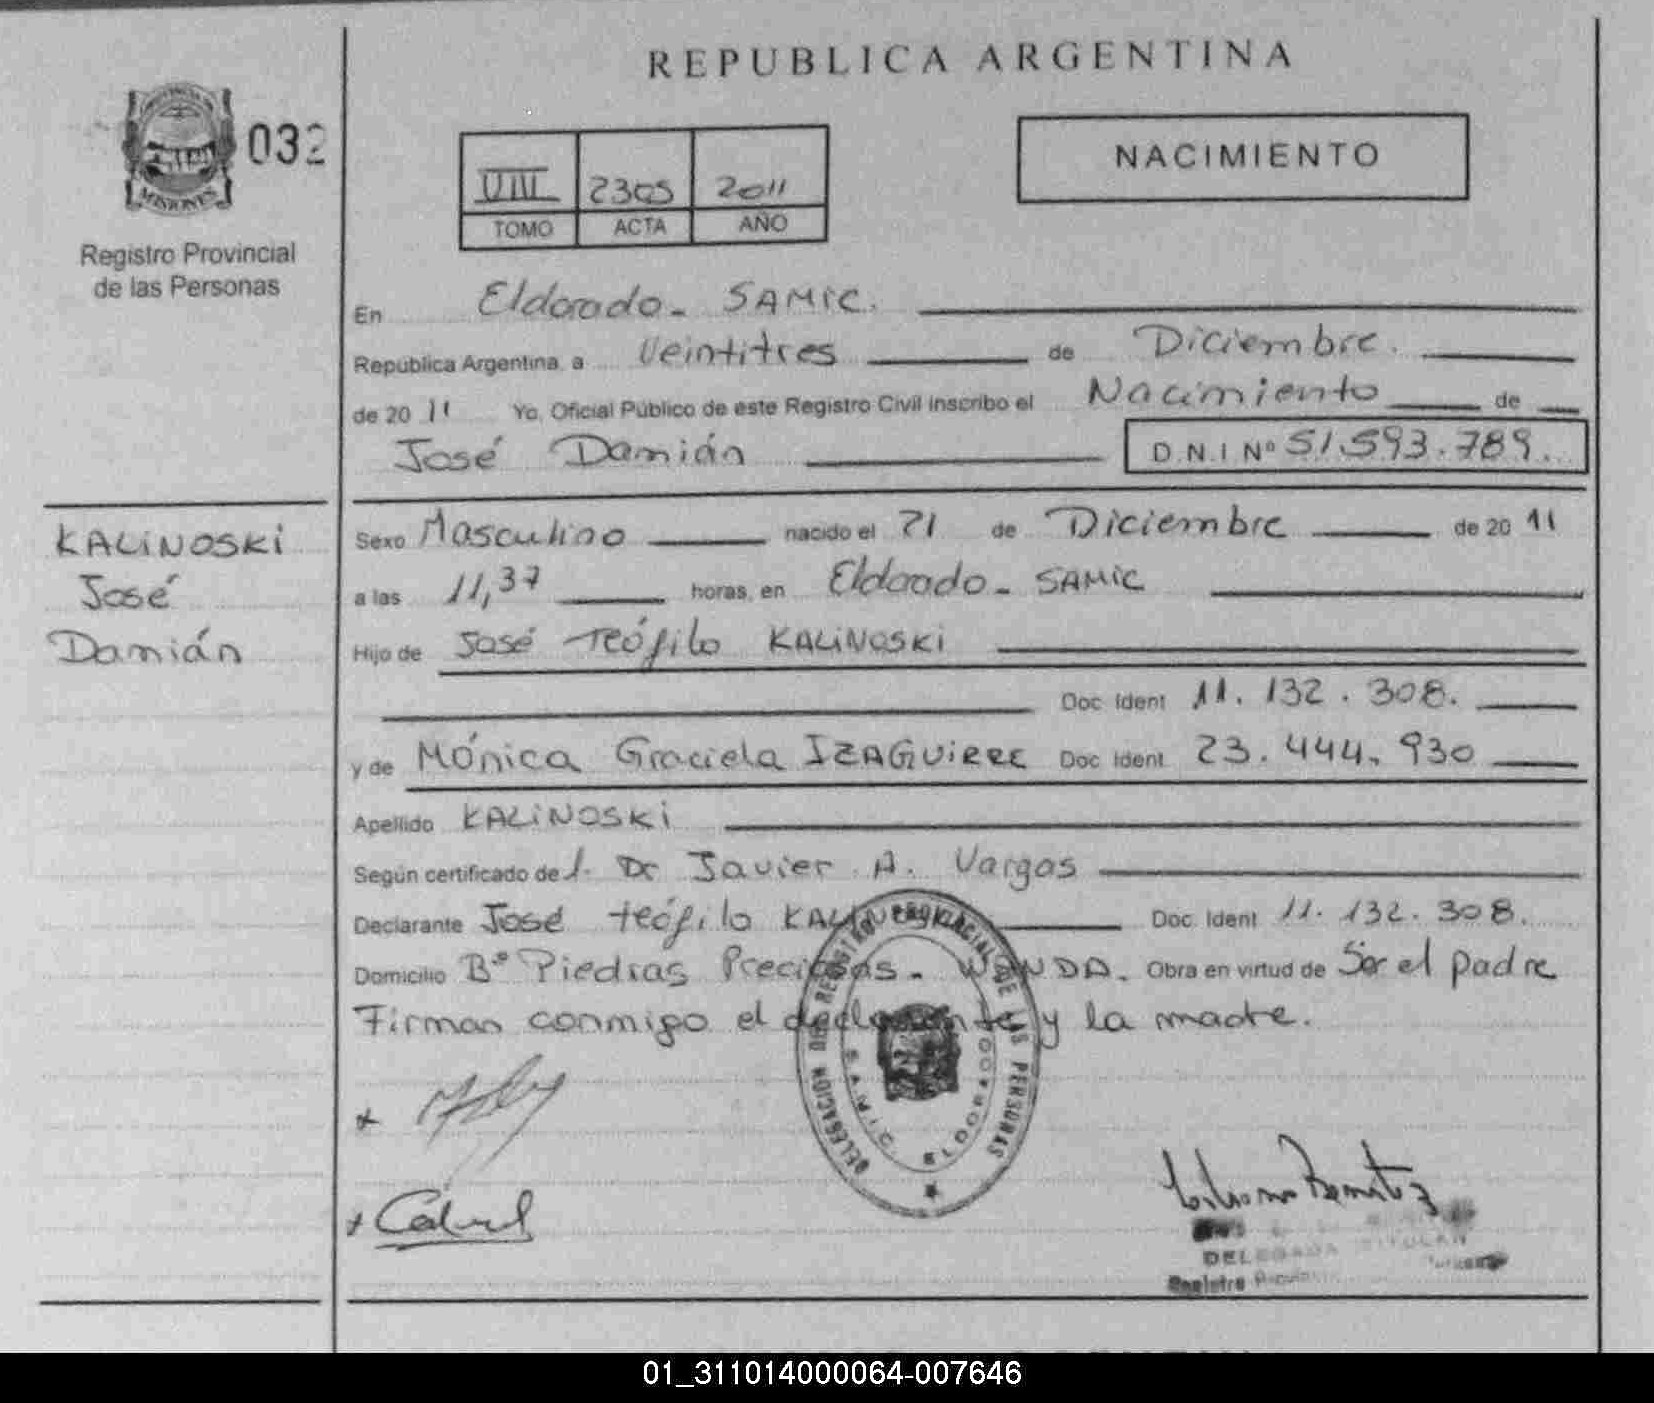 REPUBLICA ARGENTINA
MISIONES
032
Registro Provincial
de las Personas
VIII 2305 2011
TOMO ACTA AÑO
NACIMIENTO
En Eldorado - SAMIC.
República Argentina, a Veintitres de Diciembre.
de 20 11 Yo, Oficial Público de este Registro Civil inscribo el Nacimiento de
José Damián D.N.I Nº 51.593.789.
KALiNOSKi
José
Damián
Sexo Masculino nacido el 21 de Diciembre de 20 11
a las 11,37 horas, en Eldorado - SAMIC
Hijo de José Teófilo KALiNOSKi
Doc. Ident 11.132.308.
y de Mónica Graciela IZAGUIRRE Doc. Ident 23.444.930
Apellido KALiNOSKi
Según certificado de l. Dr Javier A. Vargas
Declarante José teófilo KALiNOSKi Doc. Ident 11.132.308.
Domicilio Bº Piedras Preciosas - WANDA. Obra en virtud de Ser el padre
Firman conmigo el declarante y la madre.
DELEGACION DEL REGISTRO PROVINCIAL DE LAS PERSONAS
SAMIC ELDORADO
DELEGADA TITULAR
Registro
01_311014000064-007646